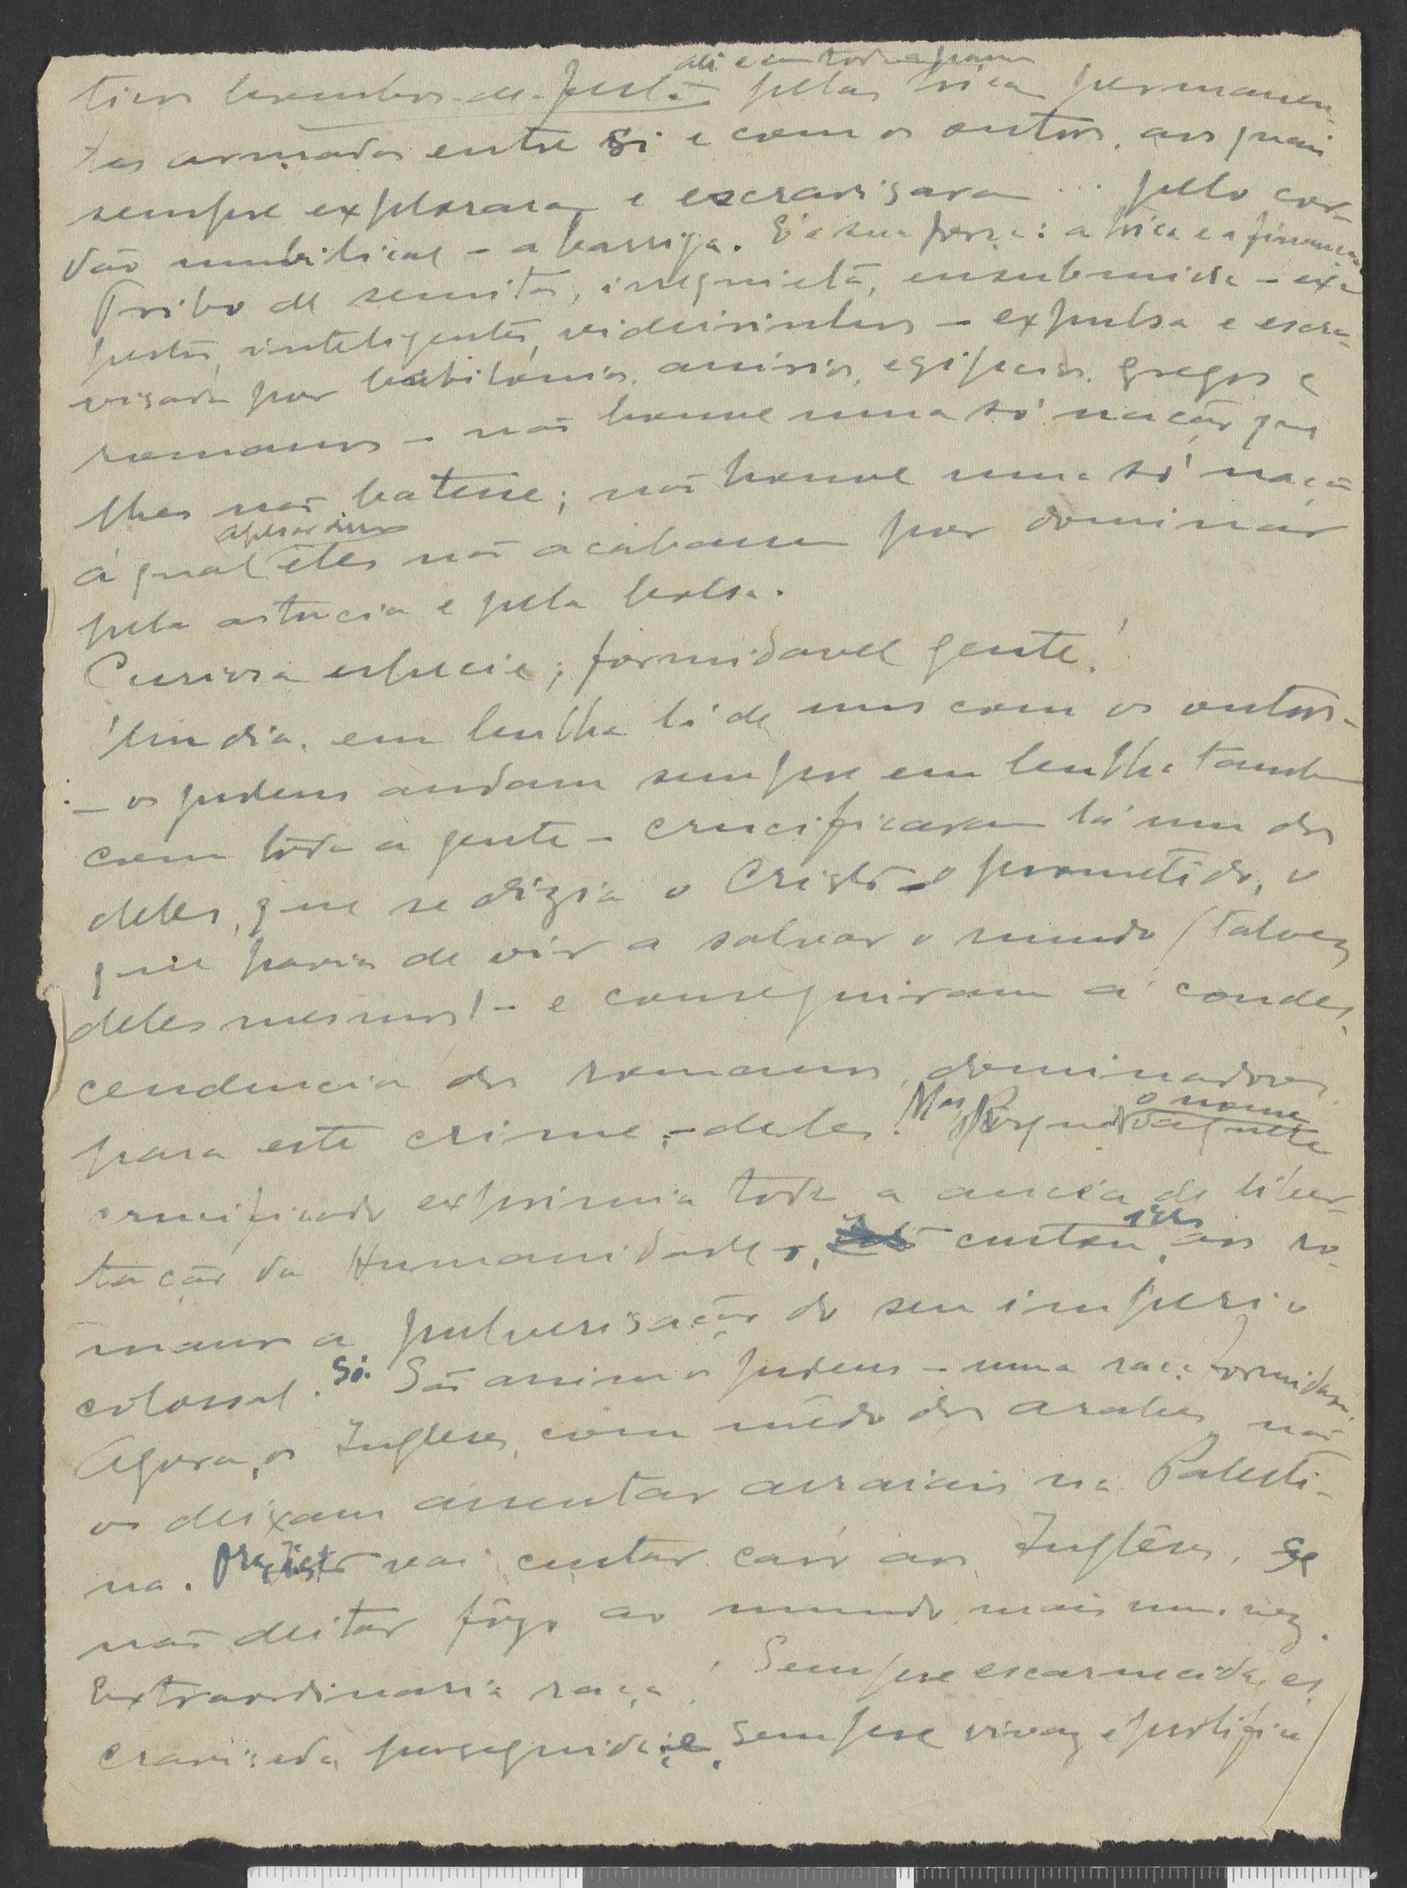 ali e em toda a parte
pelas tricas permanen-
tes armadas entre si e com os outros, aos quais
sempre exploraram e escravisaram ... pelo cor-
dão umbilical - a barriga. É a sua força: a trica e a finança
Tribo de semitas, irrequieta, insubmissa -
inteligente, - expulsa e escra-
visada por babilónios, assírios, egípcios, gregos e
romanos - não houve uma só nação que
lhes não batesse; não houve uma só nação
apesar disso
á qual êles não acabassem por dominar
pela astucia e pela bolsa.
Curiosa especie; formidavel gente!
Um dia, em bulha lá de uns com os outros -
- os judeus andam sempre em bulha tambem
com toda a gente - crucificaram lá um dos
deles, que se dizia o Cristo - o prometido, o
que havia de vir a salvar o mundo (talvez
deles mesmos) - e conseguiram a condes-
cendencia dos romanos, dominadores
para este crime, - deles. Mas porque o nome
crucificado exprimia toda a ancia de liber-
tação da Humanidade, custou isso aos ro-
manos a pulverisação do seu imperio
colossal. Só. São assim os judeus - uma raça formidavel.
Agora, os Ingleses, com mêdo dos arabes, não
os deixam assentar arraiais na Palesti-
na. vai custar caro aos Inglêses, se
não deitar fôgo ao mundo mais uma vez.
Extraordinaria raça! Sempre escarnecida, es-
cravisada, perseguida e sempre vivaz e prolifica